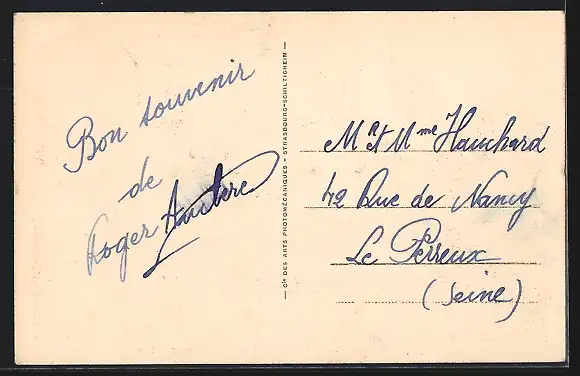 Bon souvenir
de
Roger
— Cie DES ARTS PHOTOMÉCANIQUES - STRASBOURG-SCHILTIGHEIM —
Mr et Mme Hauchard
42 Rue de Nancy
Le Perreux
(Seine)